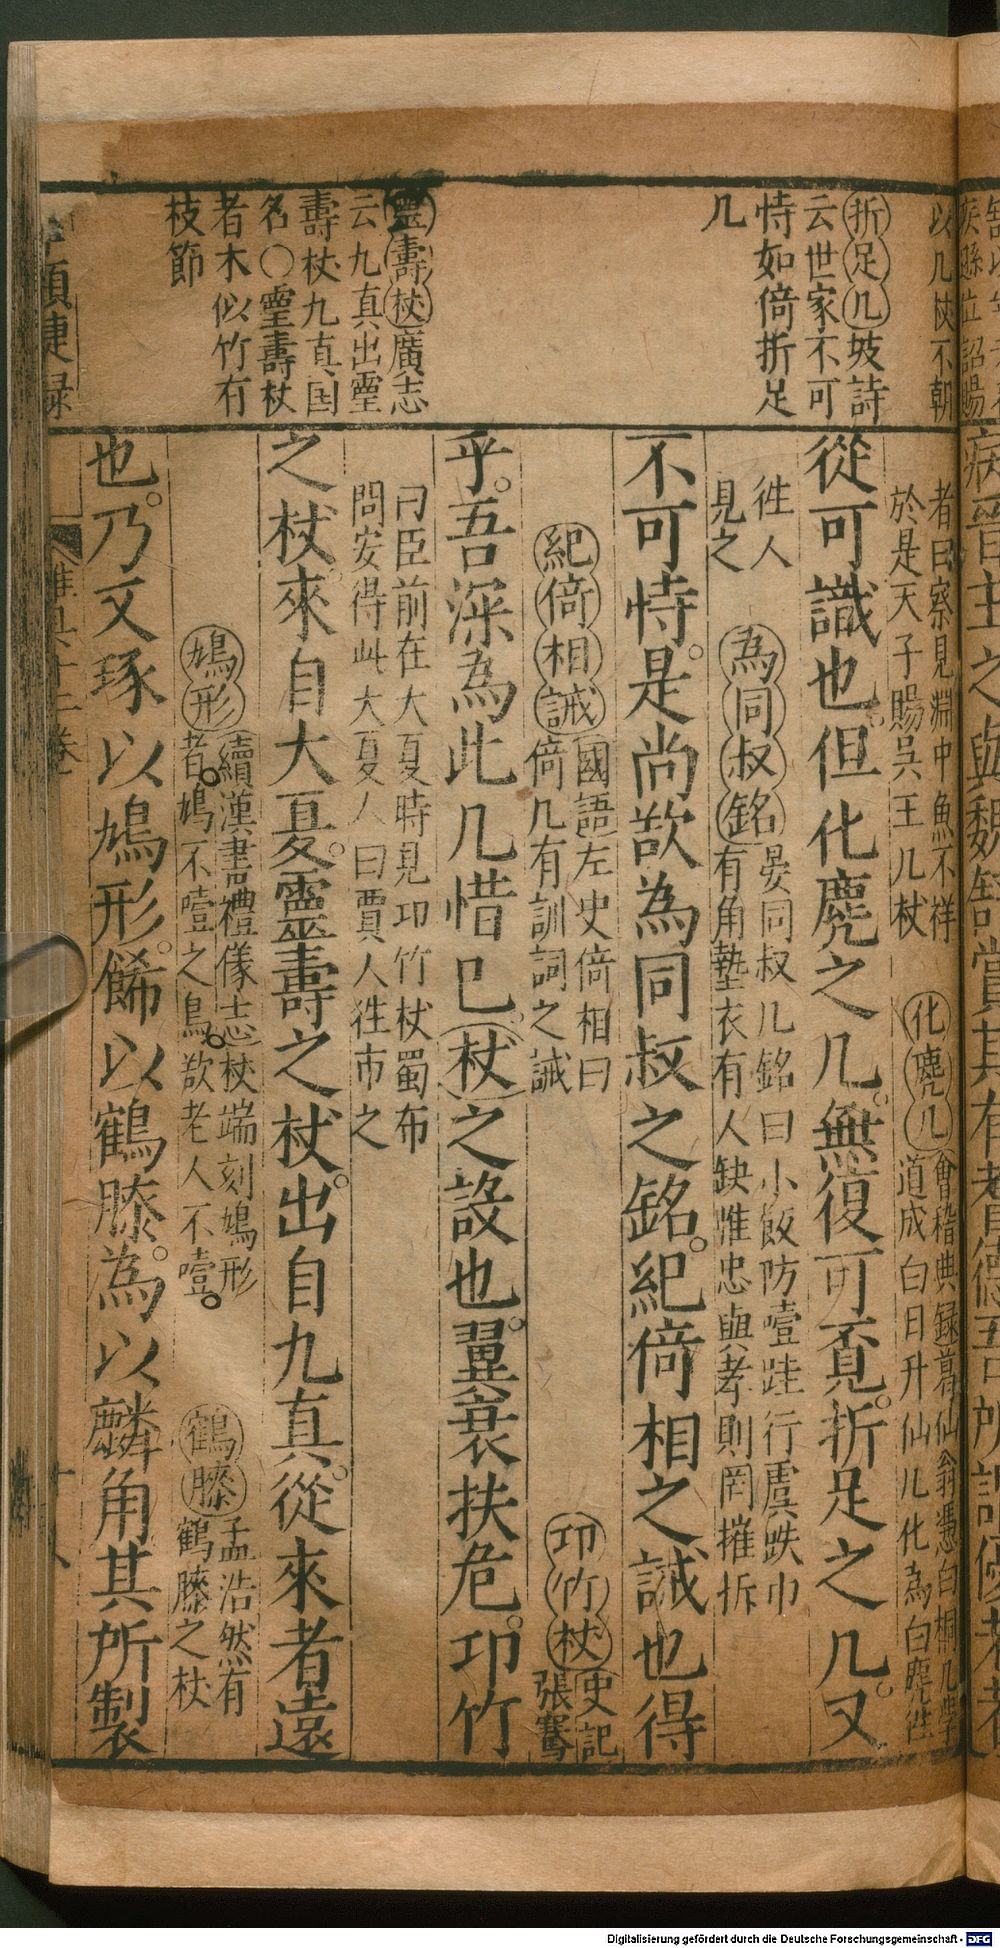 以几杖不朝
折足几坡詩
云世家不可
恃如倚折足
几
靈壽杖廣志
云九真出靈
壽杖九真国
名〇靈壽杖
者木似竹有
枝節
者曰察見淵中魚不祥
於是天子賜吳王几杖
化麂几會稽典録葛仙翁憑白桐几學
道成白日升仙几化為白麂徃
從可識也但化麂之几無復可覔折足之几又
徃人
見之
為同叔銘晏同叔几銘曰小飯防噎跬行虞跌巾
有角墊衣有人缺惟忠與孝則罔摧拆
不可恃是尚欲為同叔之銘紀倚相之誡也得
紀倚相誡國語左史倚相曰
倚几有訓詞之誡
卭竹杖史記
張騫
乎吾深為此几惜已杖之設也翼衰扶危卭竹
曰臣前在大夏時見卭竹杖蜀布
問安得此大夏人曰賈人徃市之
之杖來自大夏靈壽之杖出自九真從來者遠
鳩形續漢書禮儀志杖端刻鳩形
者鳩不噎之鳥欲老人不噎
鶴膝孟浩然有
鶴膝之杖
也乃文琢以鳩形餙以鶴膝為以麟角其所製
Digitalisierung gefördert durch die Deutsche Forschungsgemeinschaft - DFG